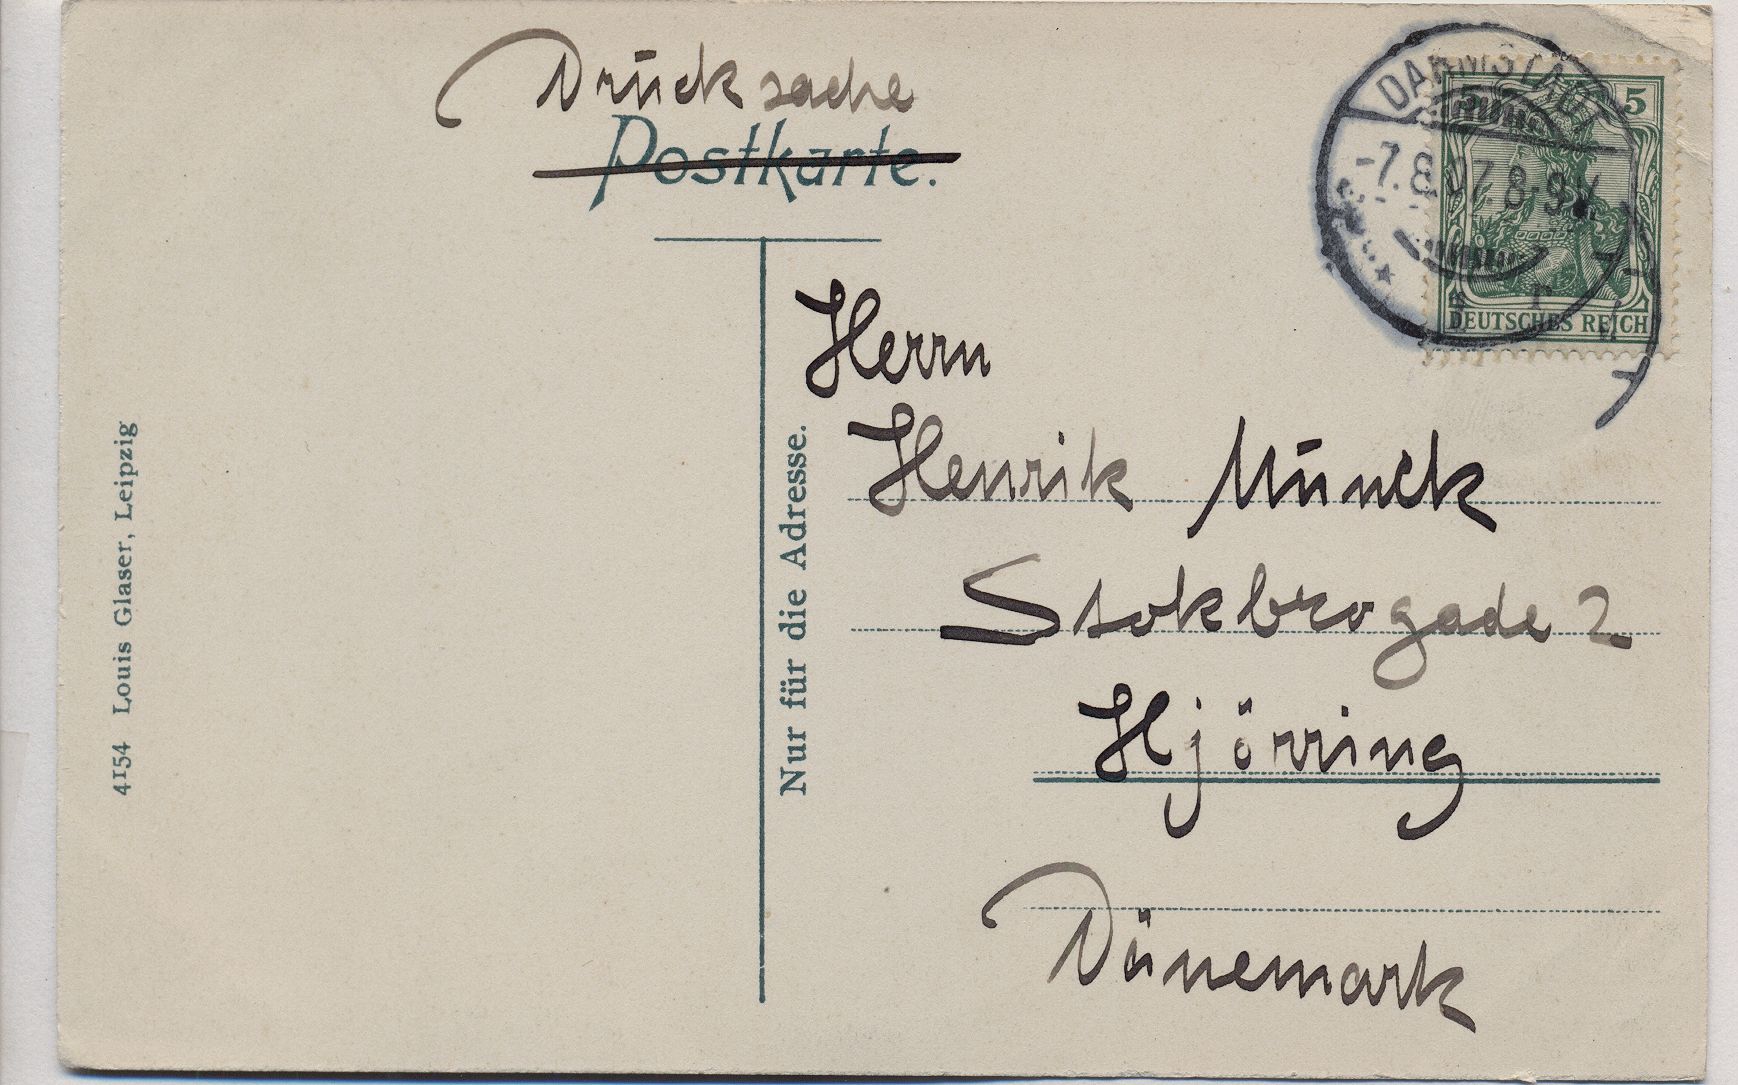 Drucksache
Postkarte.
DARMSTADT
-7.8.07. 8-9V.
5
DEUTSCHES REICH
Herrn
Henrik Munck
Nur für die Adresse.
Stokbrogade 2
Hjörring
Dänemark
4154 Louis Glaser, Leipzig